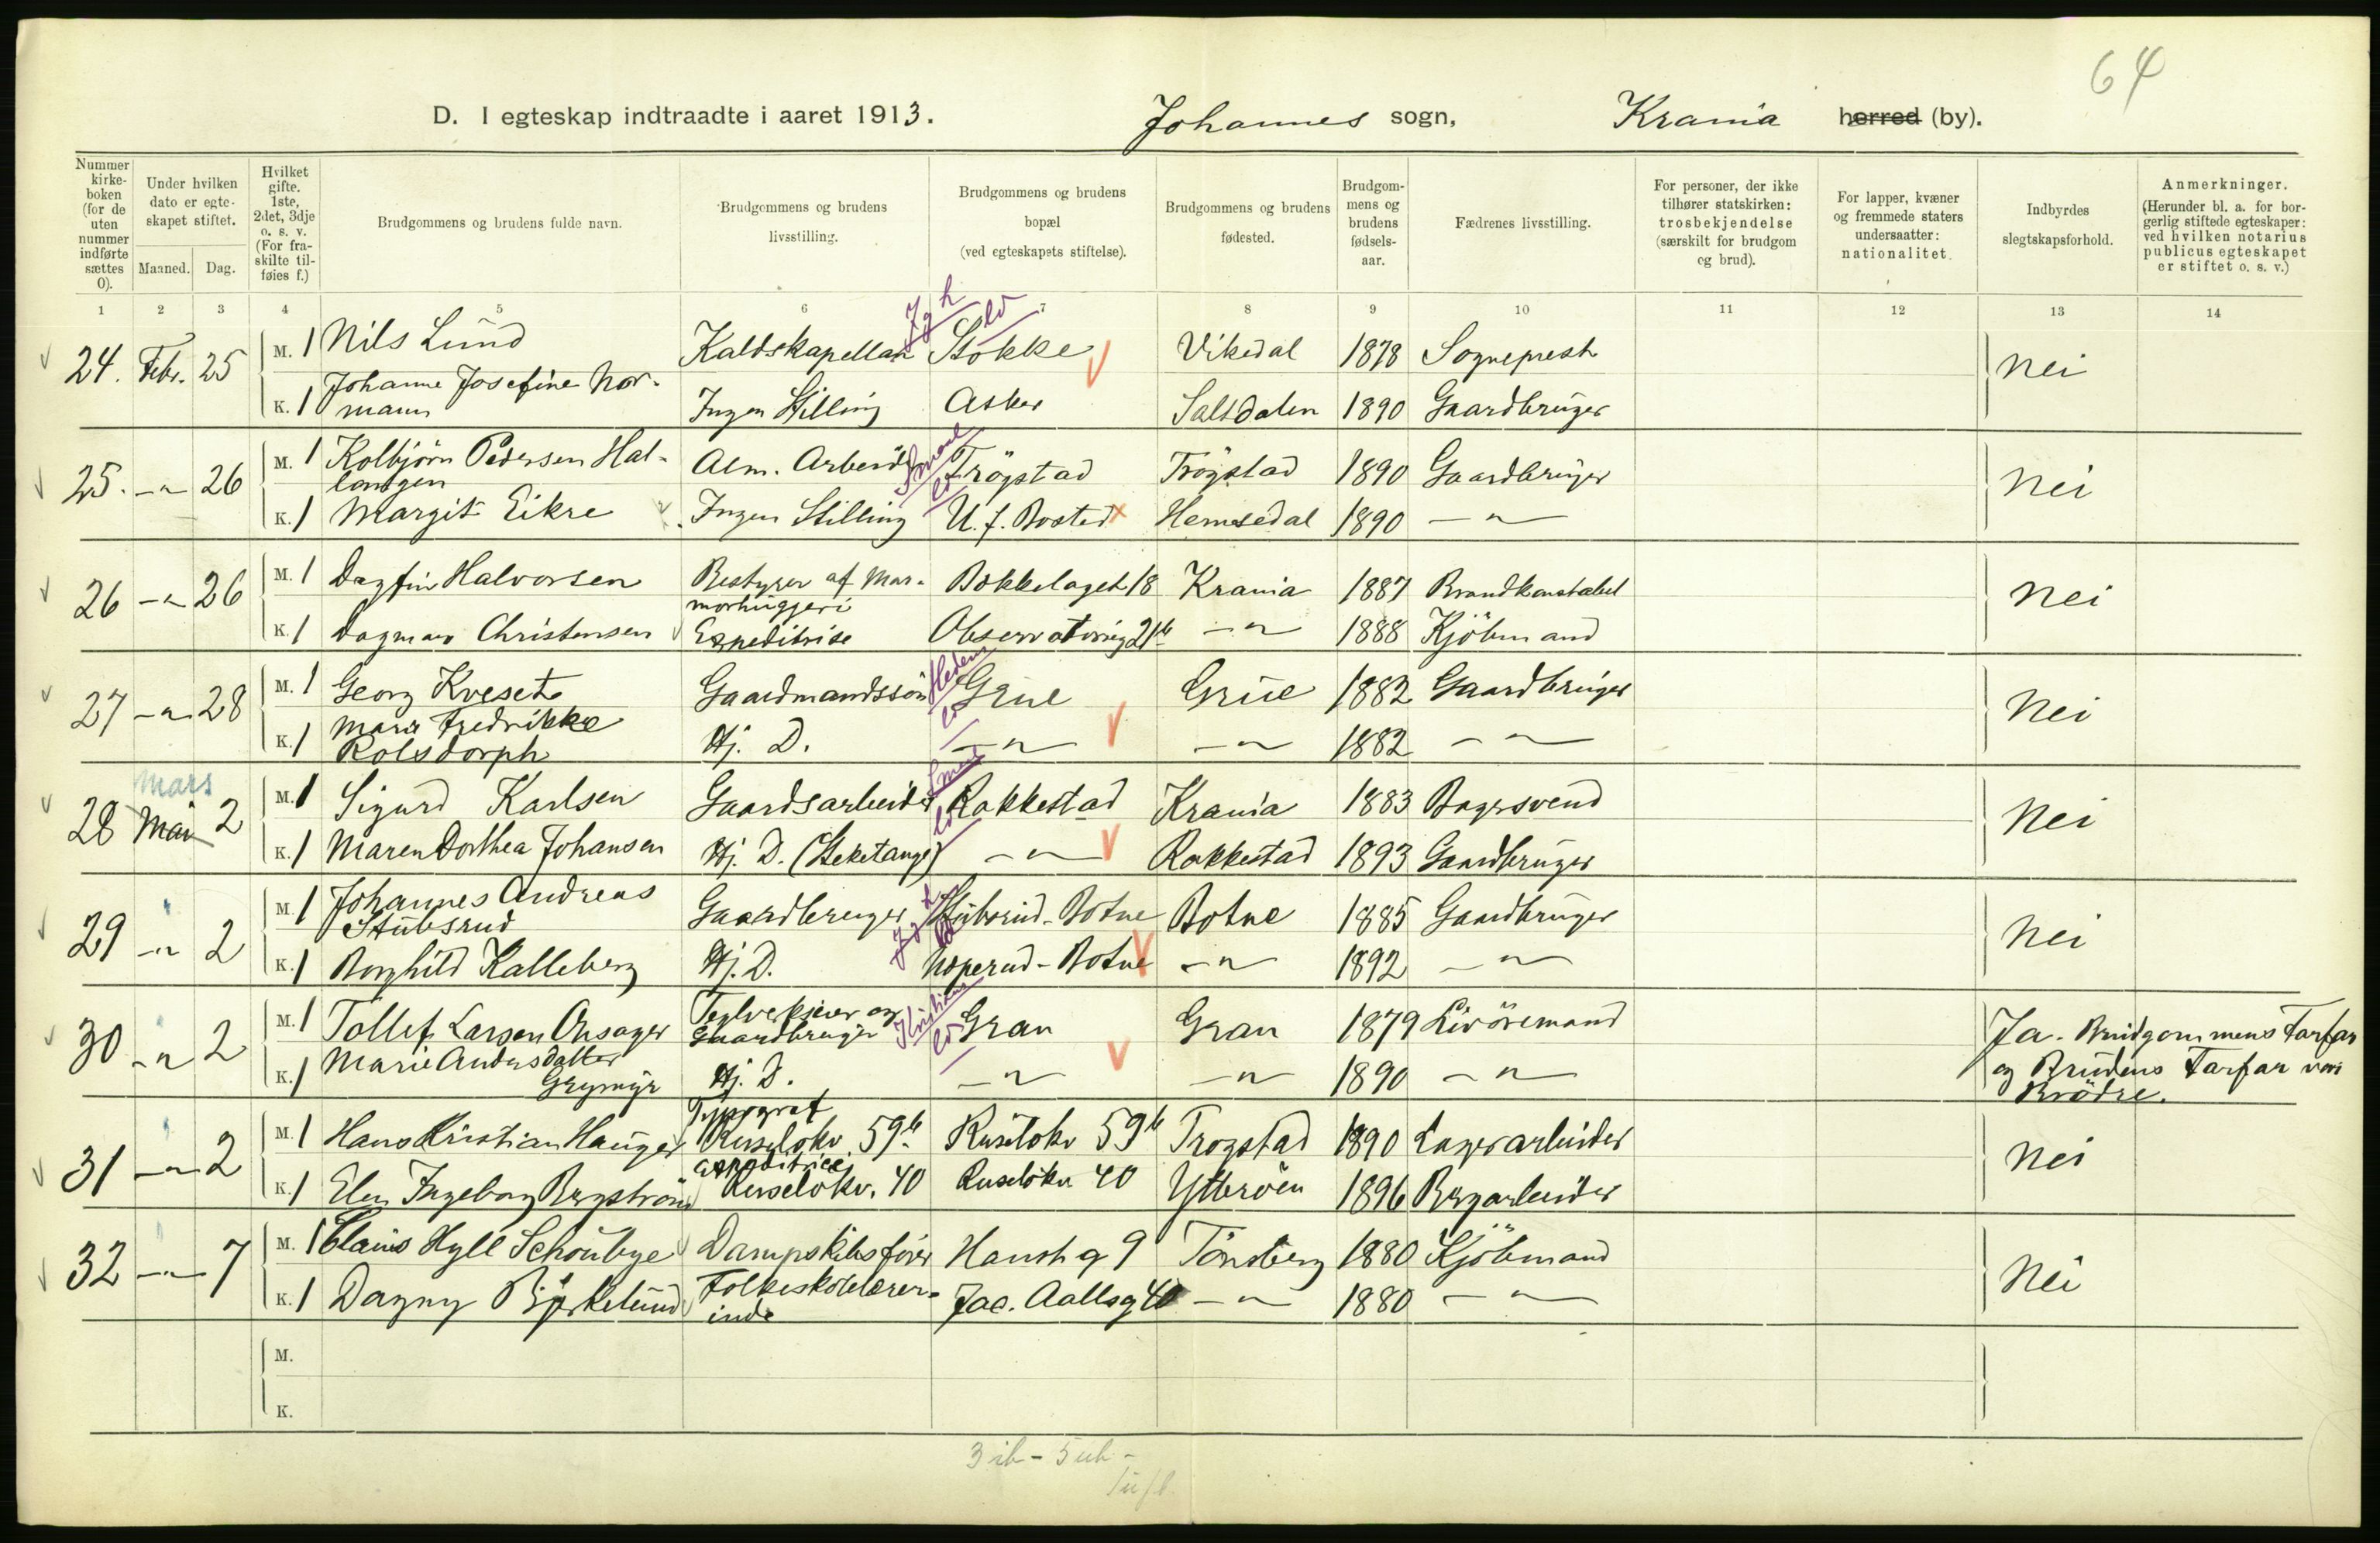 64
D. I egteskap indtraadte i aaret 1913. Johannes sogn, Krania herred (by).
Nummer kirke-boken (for de uten nummer indførte sættes 0).
Under hvilken dato er egte-skapet stiftet.
Maaned. Dag.
Hvilket gifte. 1ste, 2det, 3dje o. s. v. (For fra-skilte til-føies f.)
Brudgommens og brudens fulde navn.
Brudgommens og brudens livsstilling.
Brudgommens og brudens bopæl (ved egteskapets stiftelse).
Brudgommens og brudens fødested.
Brudgom-mens og brudens fødsels-aar.
Fædrenes livsstilling.
For personer, der ikke tilhører statskirken: trosbekjendelse (særskilt for brudgom og brud).
For lapper, kvæner og fremmede staters undersaatter: nationalitet.
Indbyrdes slegtskapsforhold.
Anmerkninger. (Herunder bl. a. for bor-gerlig stiftede egteskaper: ved hvilken notarius publicus egteskapet er stiftet o. s. v.)
1 2 3 4 5 6 7 8 9 10 11 12 13 14
24. Febr. 25 M. 1 Nils Lund Kaldskapellan Stokke Vikedal 1878 Sogneprest Nei
K. 1 Johanne Josefine Nor-
mann Ingen Stilling Asker Saltdalen 1890 Gaardbruger
25. -"- 26 M. 1 Kolbjörn Pedersen Hal-
langen Alm. Arbeid Trögstad Trögstad 1890 Gaardbruger Nei
K. 1 Margit Eikre Ingen Stilling U. f. Bosted Hemsedal 1890 -"-
26 -"- 26 M. 1 Dagfin Halvorsen Bestyrer af Mar-
morhuggeri Bakkelaget 18 Krania 1887 Brandkonstabel Nei
K. 1 Dagmar Christensen Expeditrise Observatorieg 21b -"- 1888 Kjöbmand
27 -"- 28 M. 1 Georg Kveseth Gaardmandssön Grue Grue 1882 Gaardbruger Nei
K. 1 Marie Fredrikke
Rolsdorph Hj. D. -"- -"- 1882 -"-
Mars
28 Mai 2 M. 1 Sigurd Karlsen Gaardsarbeider Rakkestad Krania 1883 Bagersvend Nei
K. 1 Maren Dorthea Johansen Hj. D. (Steketange) -"- Rakkestad 1893 Gaardbruger
29 -"- 2 M. 1 Johannes Andreas
Stubsrud Gaardbruger Stubsrud-Botne Botne 1885 Gaardbruger Nei
K. 1 Borghild Kalleberg Hj. D. Noperud-Botne -"- 1892 -"-
30 -"- 2 M. 1 Tollef Larsen Onsager Teglverkseier og
Gaardbruger Gran Gran 1879 Livöremand Ja. Brudgommens Farfar
K. 1 Marie Andersdatter
Grymyr Hj. D. -"- -"- 1890 -"- og Brudens Farfar var
Brödre.
31 -"- 2 M. 1 Hans Kristian Hauger Typograf
Ruselökv. 59b Ruselökv 59b Trogstad 1890 Lagerarbeider Nei
K. 1 Elen Ingeborg Bergström Expeditrice
Ruselökv. 40 Ruselökv 40 Ytteröen 1896 Bergarbeider
32 -"- 7 M. 1 Claus Hyll Schoubye Dampskibsförer Hansh g 9 Tönsberg 1880 Kjöbmand Nei
K. 1 Dagny Bjerkelund Folkeskolelærer-
inde Jac. Aallsg 40 -"- 1880 -"-
M.
K.
3 ib - 5 ub -